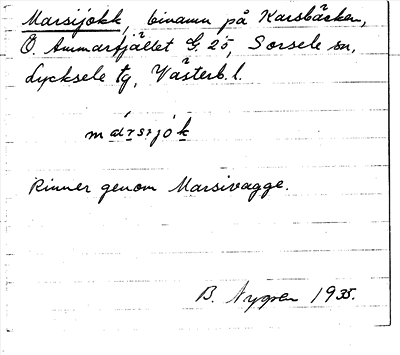 Marsijokk, binamn på Karsbäcken,
Ö. Ammarfjället G. 25, Sorsele sn,
Lycksele tg, Västerb. l.
mársijók
Rinner genom Marsivagge.
B. Nygren 1935.